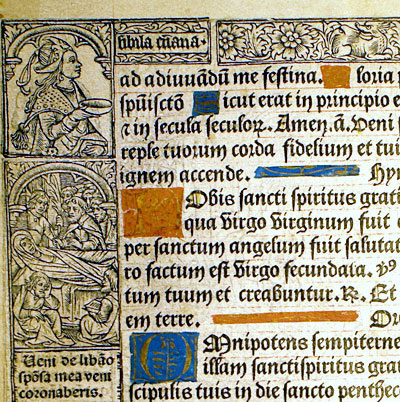 sibila cūana.
ad adiuuādū me festina. loria p
spūisctō Sicut erat in principio e
⁊ in secula seculoꝝ. Amen. ā. Veni s
reple tuorum corda fidelium et tui
ignem accende. Hyn
Obis sancti spiritus grati
qua Virgo Virginum fuit
per sanctum angelum fuit salutat
ro factum est Virgo fecundata. Vꝰ
tum tuum et creabuntur. ℟. Et
em terre. Or
OMnipotens sempiterne
illam sanctispiritus grat
scipulis tuis in die sancto penthec
Ueni de libāo
spōsa mea veni
coronaberis.